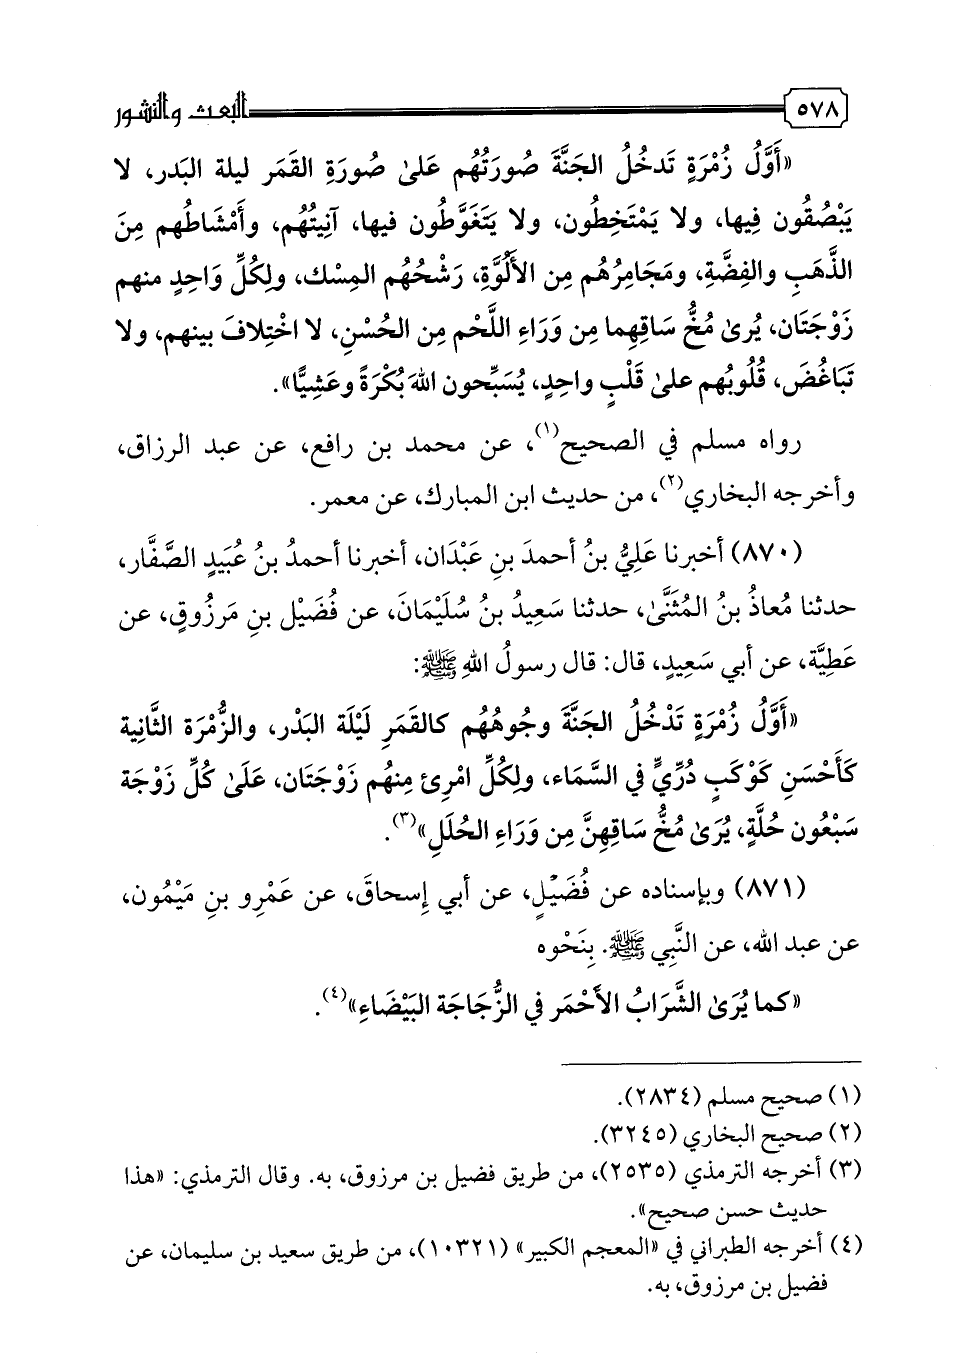 ٥٧٨ البعث والنشور
«أَوَّلُ زُمْرَةٍ تَدخُلُ الجَنَّةَ صُورَتُهُم عَلىٰ صُورَةِ القَمَر ليلة البَدر، لا
يَبْصُقُون فِيها، ولا يَمْتَخِطُون، ولا يَتَغَوَّطُون فيها، آنِيتُهُم، وأَمْشَاطُهم مِنَ
الذَّهَبِ والفِضَّةِ، ومَجَامِرُهُم مِن الأَلُوَّةِ، رَشْحُهُم المِسْك، ولِكُلِّ وَاحِدٍ منهم
زَوْجَتَان، يُرىٰ مُخُّ سَاقِهِما مِن وَرَاءِ اللَّحْم مِن الحُسْنِ، لا اخْتِلافَ بينهم، ولا
تَبَاغُضَ، قُلُوبُهم علىٰ قَلْبٍ واحِدٍ، يُسَبِّحون اللهَ بُكْرَةً وعَشِيًّا».
رواه مسلم في الصحيح(١)، عن محمد بن رافع، عن عبد الرزاق،
وأخرجه البخاري(٢)، من حديث ابن المبارك، عن معمر.
(٨٧٠) أخبرنا عَلِيُّ بنُ أحمدَ بنِ عَبْدَان، أخبرنا أحمدُ بنُ عُبَيدٍ الصَّفَّار،
حدثنا مُعاذُ بنُ المُثَنَّىٰ، حدثنا سَعِيدُ بنُ سُلَيْمَانَ، عن فُضَيْل بنِ مَرزُوقٍ، عن
عَطِيَّة، عن أبي سَعِيدٍ، قال: قال رسولُ اللهِ ﷺ:
«أَوَّلُ زُمْرَةٍ تَدْخُلُ الجَنَّةَ وجُوهُهُم كالقَمَرِ لَيْلَة البَدْر، والزُّمْرَة الثَّانِية
كَأَحْسَنِ كَوْكَبٍ دُرِّيٍّ في السَّمَاء، ولِكُلِّ امْرِئٍ مِنهُم زَوْجَتَان، عَلَىٰ كُلِّ زَوْجَة
سَبْعُون حُلَّةٍ، يُرَىٰ مُخُّ سَاقِهِنَّ مِن وَرَاءِ الحُلَلِ»(٣).
(٨٧١) وبإسناده عن فُضَيْلٍ، عن أبي إسحاقَ، عن عَمْرِو بنِ مَيْمُون،
عن عبد الله، عن النَّبِي ﷺ. بِنَحْوه
«كما يُرَىٰ الشَّرَابُ الأَحْمَر في الزُّجَاجَة البَيْضَاءِ»(٤).
(١) صحيح مسلم (٢٨٣٤).
(٢) صحيح البخاري (٣٢٤٥).
(٣) أخرجه الترمذي (٢٥٣٥)، من طريق فضيل بن مرزوق، به. وقال الترمذي: «هذا
حديث حسن صحيح».
(٤) أخرجه الطبراني في «المعجم الكبير» (١٠٣٢١)، من طريق سعيد بن سليمان، عن
فضيل بن مرزوق، به.